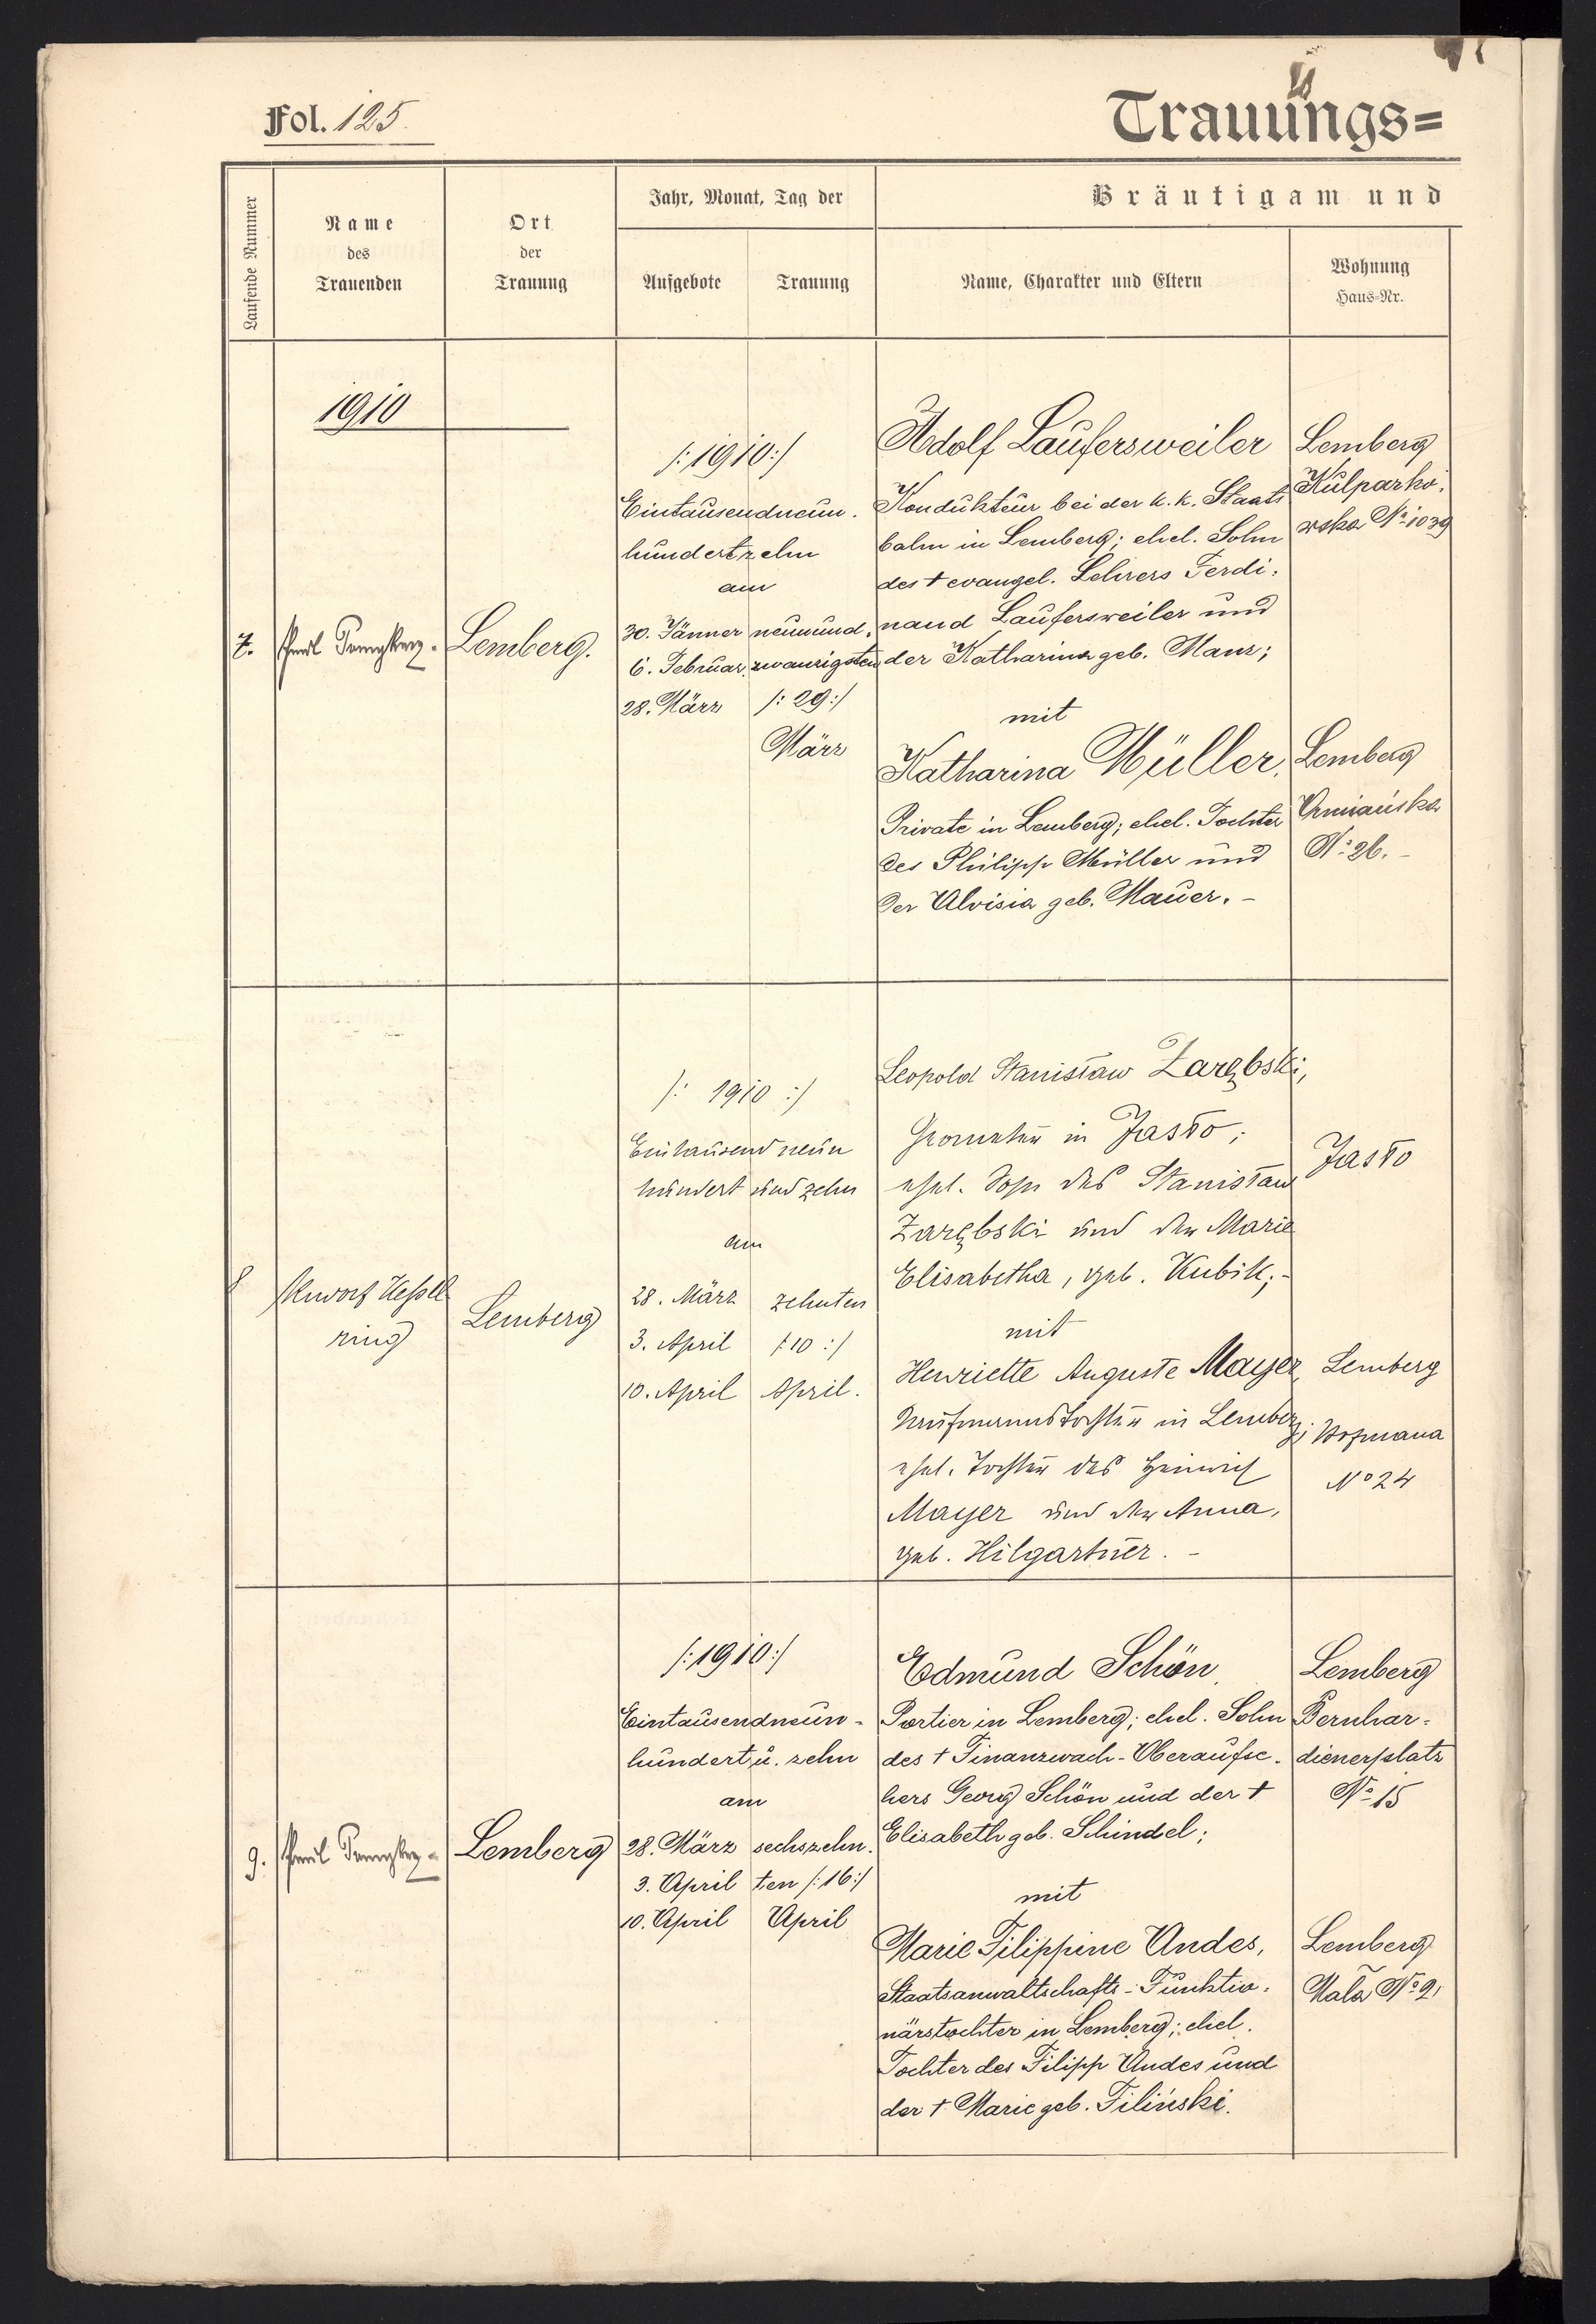 Fol. 125.
Trauungs=
Laufende Nummer
Name
des
Trauenden
Ort
der
Trauung
Jahr, Monat, Tag der
Aufgebote
Trauung
Bräutigam und
Name, Charakter und Eltern
Wohnung
Haus=Nr.
1910
7.
Lemberg.
/:1910:/
Eintausendneun-
hundertzehn
am
30. Jänner
6. Februar
28. März
neunund-
zwanzigsten
/:29:/
März
Adolf Laufersweiler
Kondukteur bei der k. k. Staats
bahn in Lemberg; ehel. Sohn
des † evangel. Lehrers Ferdi-
nand Laufersweiler und
der Katharina geb. Manz;
mit
Katharina Müller,
Private in Lemberg; ehel. Tochter
des Philipp Müller und
der Aloisia geb. Mauer. –
Lemberg
Kulparko-
wska No 1039
Lemberg
Ormiańska
No 26. –
8
ring
Lemberg
/: 1910 :/
Eintausend neun
hundert und zehn
am
28. März
3. April
10. April
zehnten
/:10:/
April.
Leopold Stanisław Zarębski,
Geometer in Jasło;
ehel. Sohn des Stanisław
Zarębski und der Marie
Elisabetha, geb. Kubik; -
mit
Henriette Auguste Mayer,
Kaufmannstochter in Lemberg;
ehel. Tochter des Heinrich
Mayer und der Anna,
geb. Hilgartner. –
Jasło
Lemberg
Hofmana
No 24
9.
Lemberg
/:1910:/
Eintausendneun-
hundert u. zehn
am
28. März
3. April
10. April
sechszehn-
ten /:16:/
April
Edmund Schön,
Portier in Lemberg; ehel. Sohn
des † Finanzwach-Oberaufse-
hers Georg Schön und der †
Elisabeth geb. Schindel;
mit
Marie Filippine Andes,
Staatsanwaltschafts-Funktio-
närstochter in Lemberg; ehel.
Tochter des Filipp Andes und
der † Marie geb. Filiński.
Lemberg
Bernhar-
dienerplatz
No 15
Lemberg
Mała No 2,